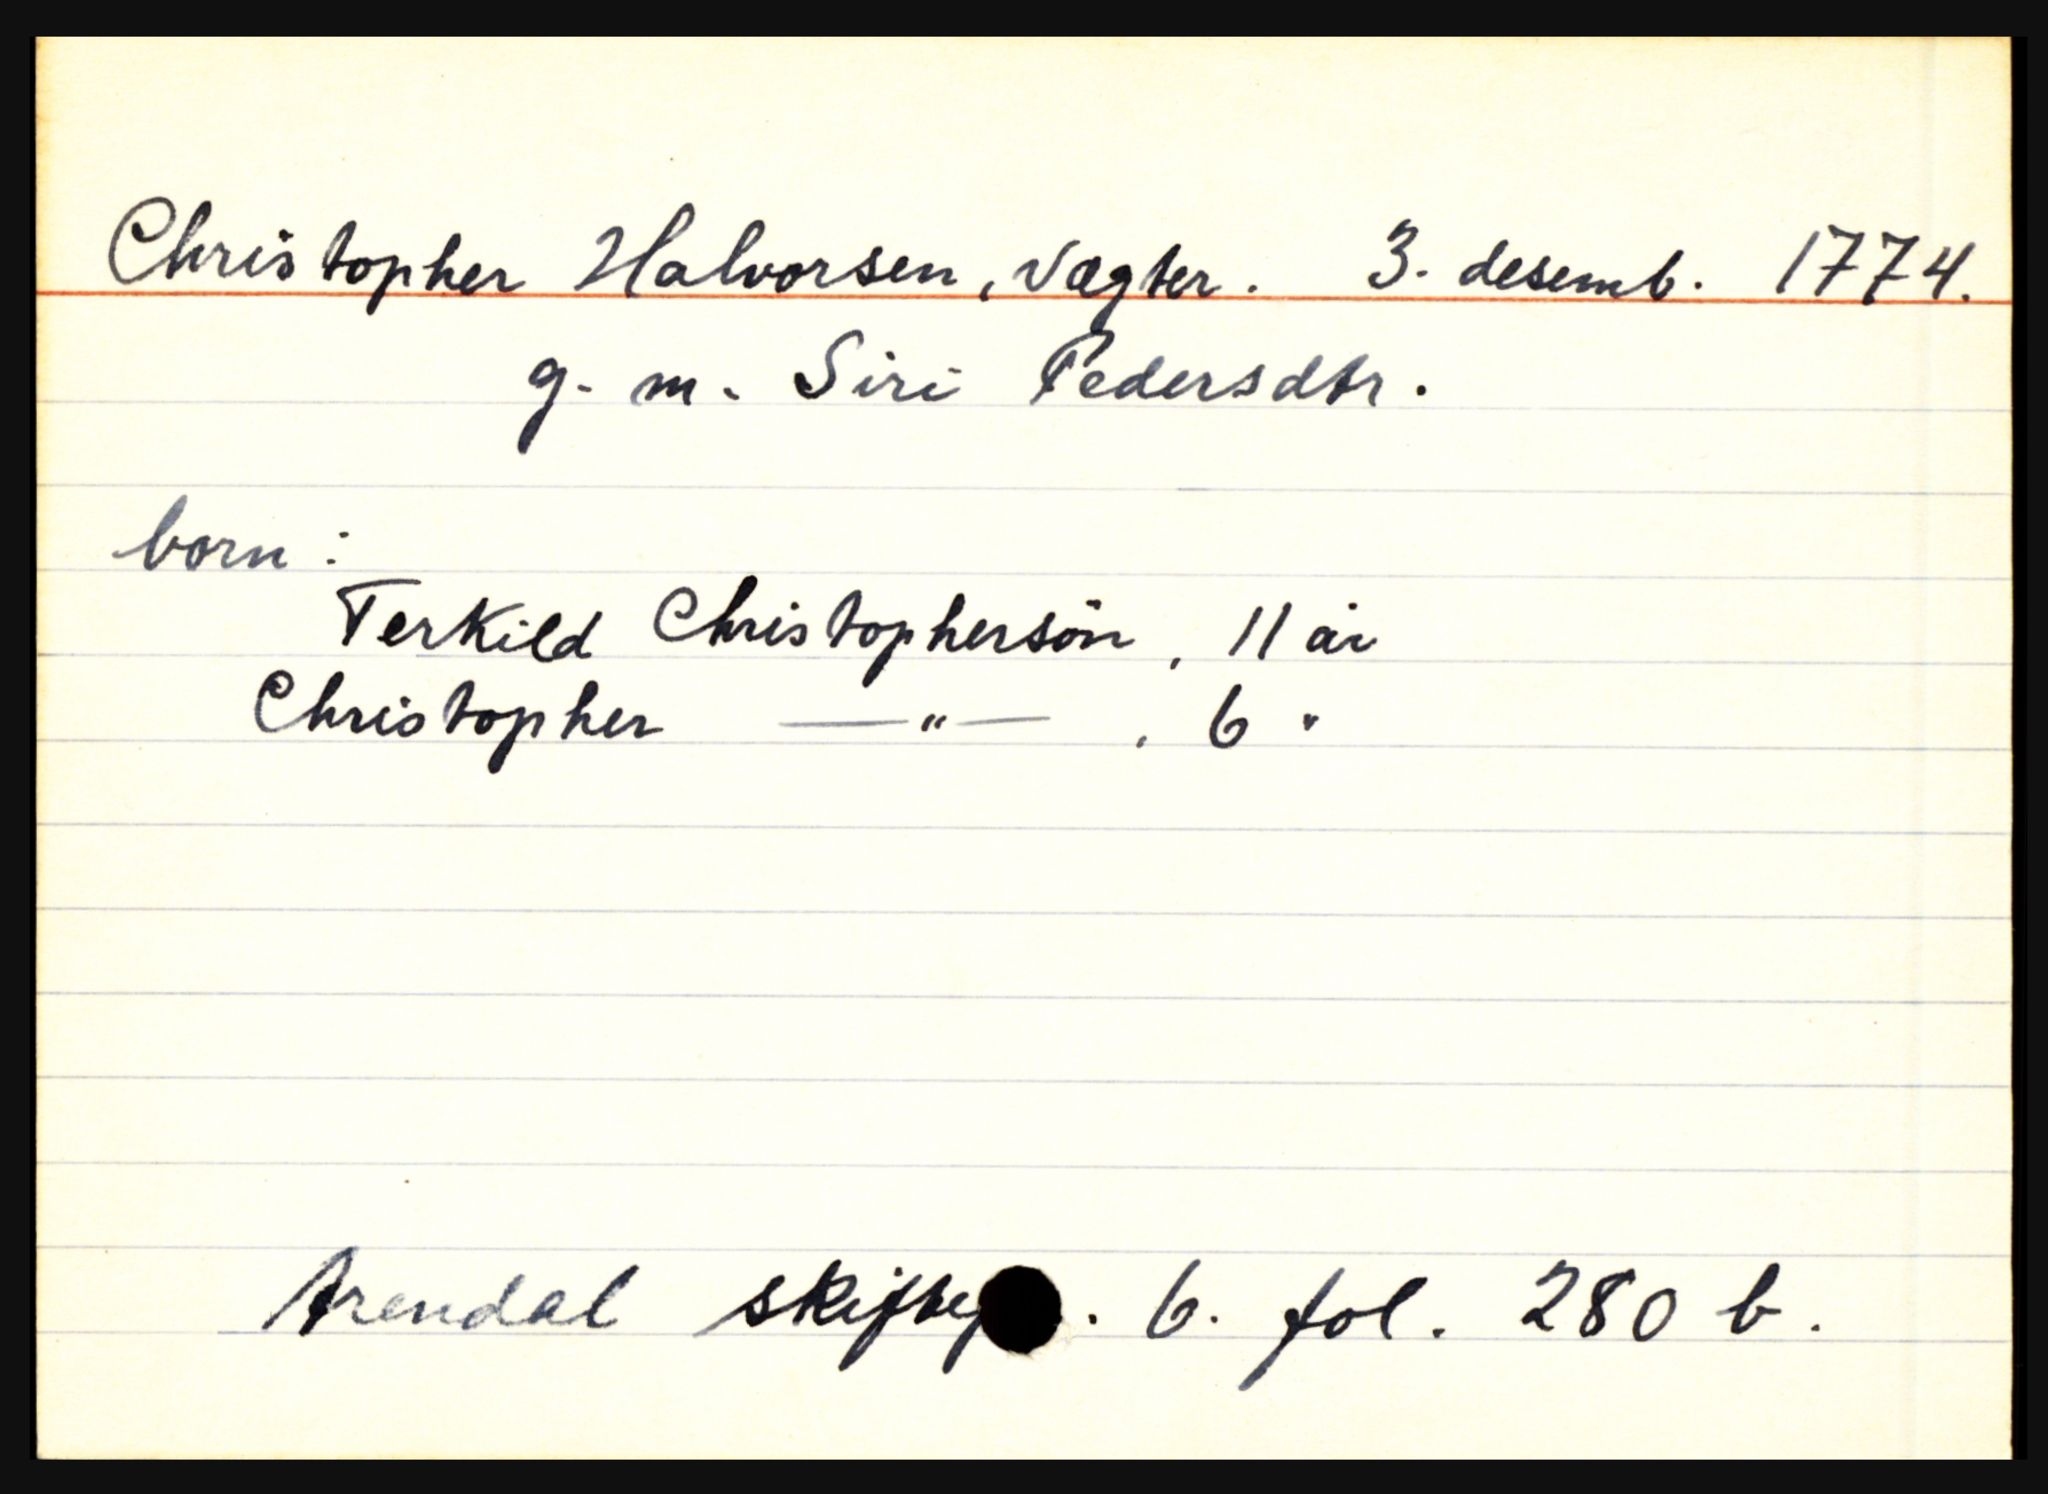 Christopher Halvorsen, Vægter. 3. desemb. 1774.
g. m. Siri Pedersdtr.
born:
Terkild Christophersön, 11 år
Christopher —"— , 6 "
Arendal . 6. fol. 280 b.